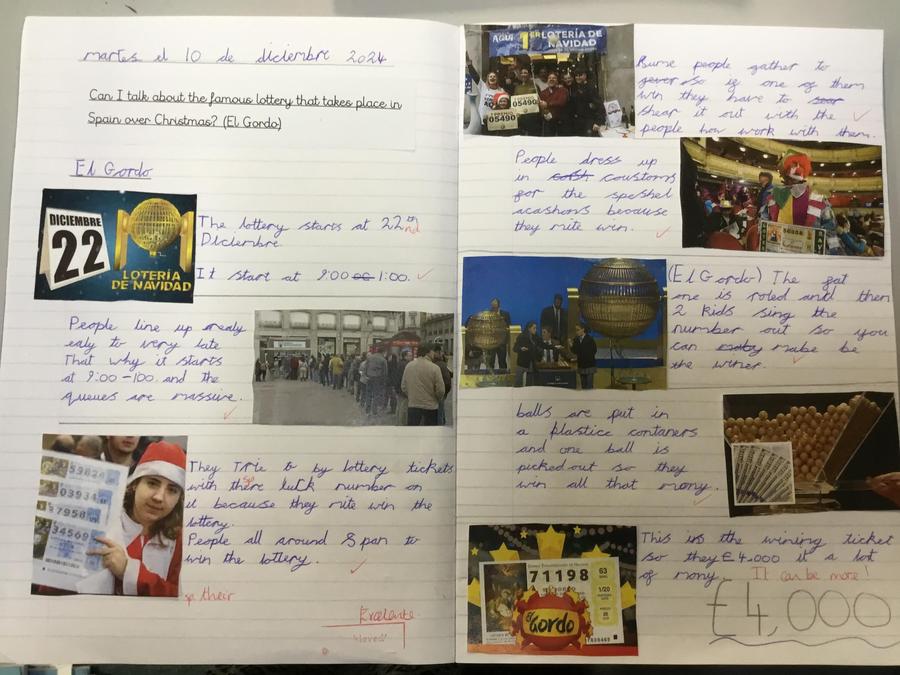 martes el 10 de diciembre 2024
Can I talk about the famous lottery that takes place in
Spain over Christmas? (El Gordo)
El Gordo
DICIEMBRE
22
LOTERÍA
DE NAVIDAD
The lottery starts at 22nd
Diciembre.
It start at 9:00 1:00.
People line up
ealy to very late
That why it starts
at 9:00-100. and the
queues are massive.
59824
03934
87958
34569
They Trie to by lottery tickets
with there luck number on
it because they mite win the
lottery.
People all around Span to
win the lottery.
sp their
AQUÍ 1er LOTERÍA DE
NAVIDAD
05490
05490
people gather to
so if one of them
win they have to
shear it out with the
people how work with them.
People dress up
in coustoms
for the speshel
acashons because
they mite win.
(El Gordo) The
one is roled and then
2 kids sing the
number out so you
can mabe be
the winer.
balls are put in
a plastice contaners
and one ball is
picked out so they
win all that mony.
71198
63
1/20
El Gordo
This is the wining ticket
so they £4.000 it a lot
of mony. It can be more!
£4,000